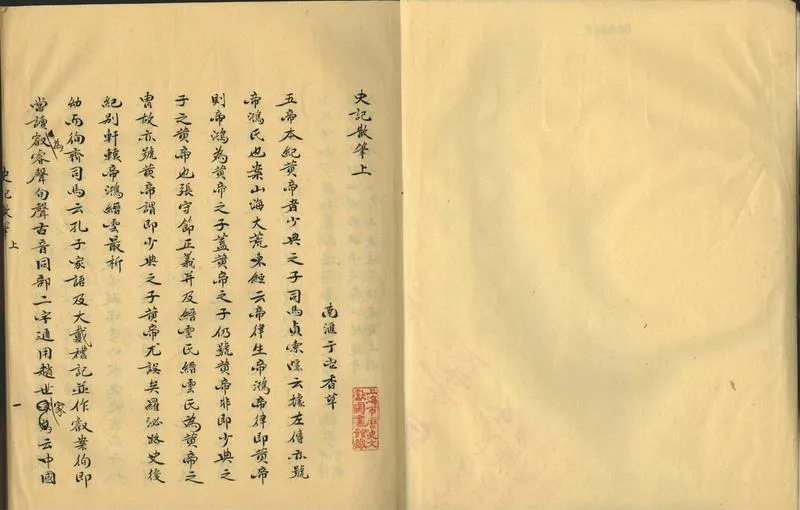 史記散筆上
南滙于鬯香草
五帝本紀黃帝者少典之子司馬貞索隱云據左傳亦號
帝鴻氏也案山海大荒東經云帝律生帝鴻帝律即黃帝
則帝鴻為黃帝之子蓋黃帝之子仍號黃帝非即少典之
子之黃帝也張守節正義并及縉雲氏縉雲氏為黃帝之
冑故亦號黃帝謂即少典之子黃帝尤誤矣羅泌路史後
紀別軒轅帝鴻縉雲最析
幼而徇齊司馬云孔子家語及大戴禮記並作叡案徇即
當讀為叡睿聲旬聲古音同部二字通用趙世家云中國
史記散筆 上
一
上海市歷史文
獻圖書館藏